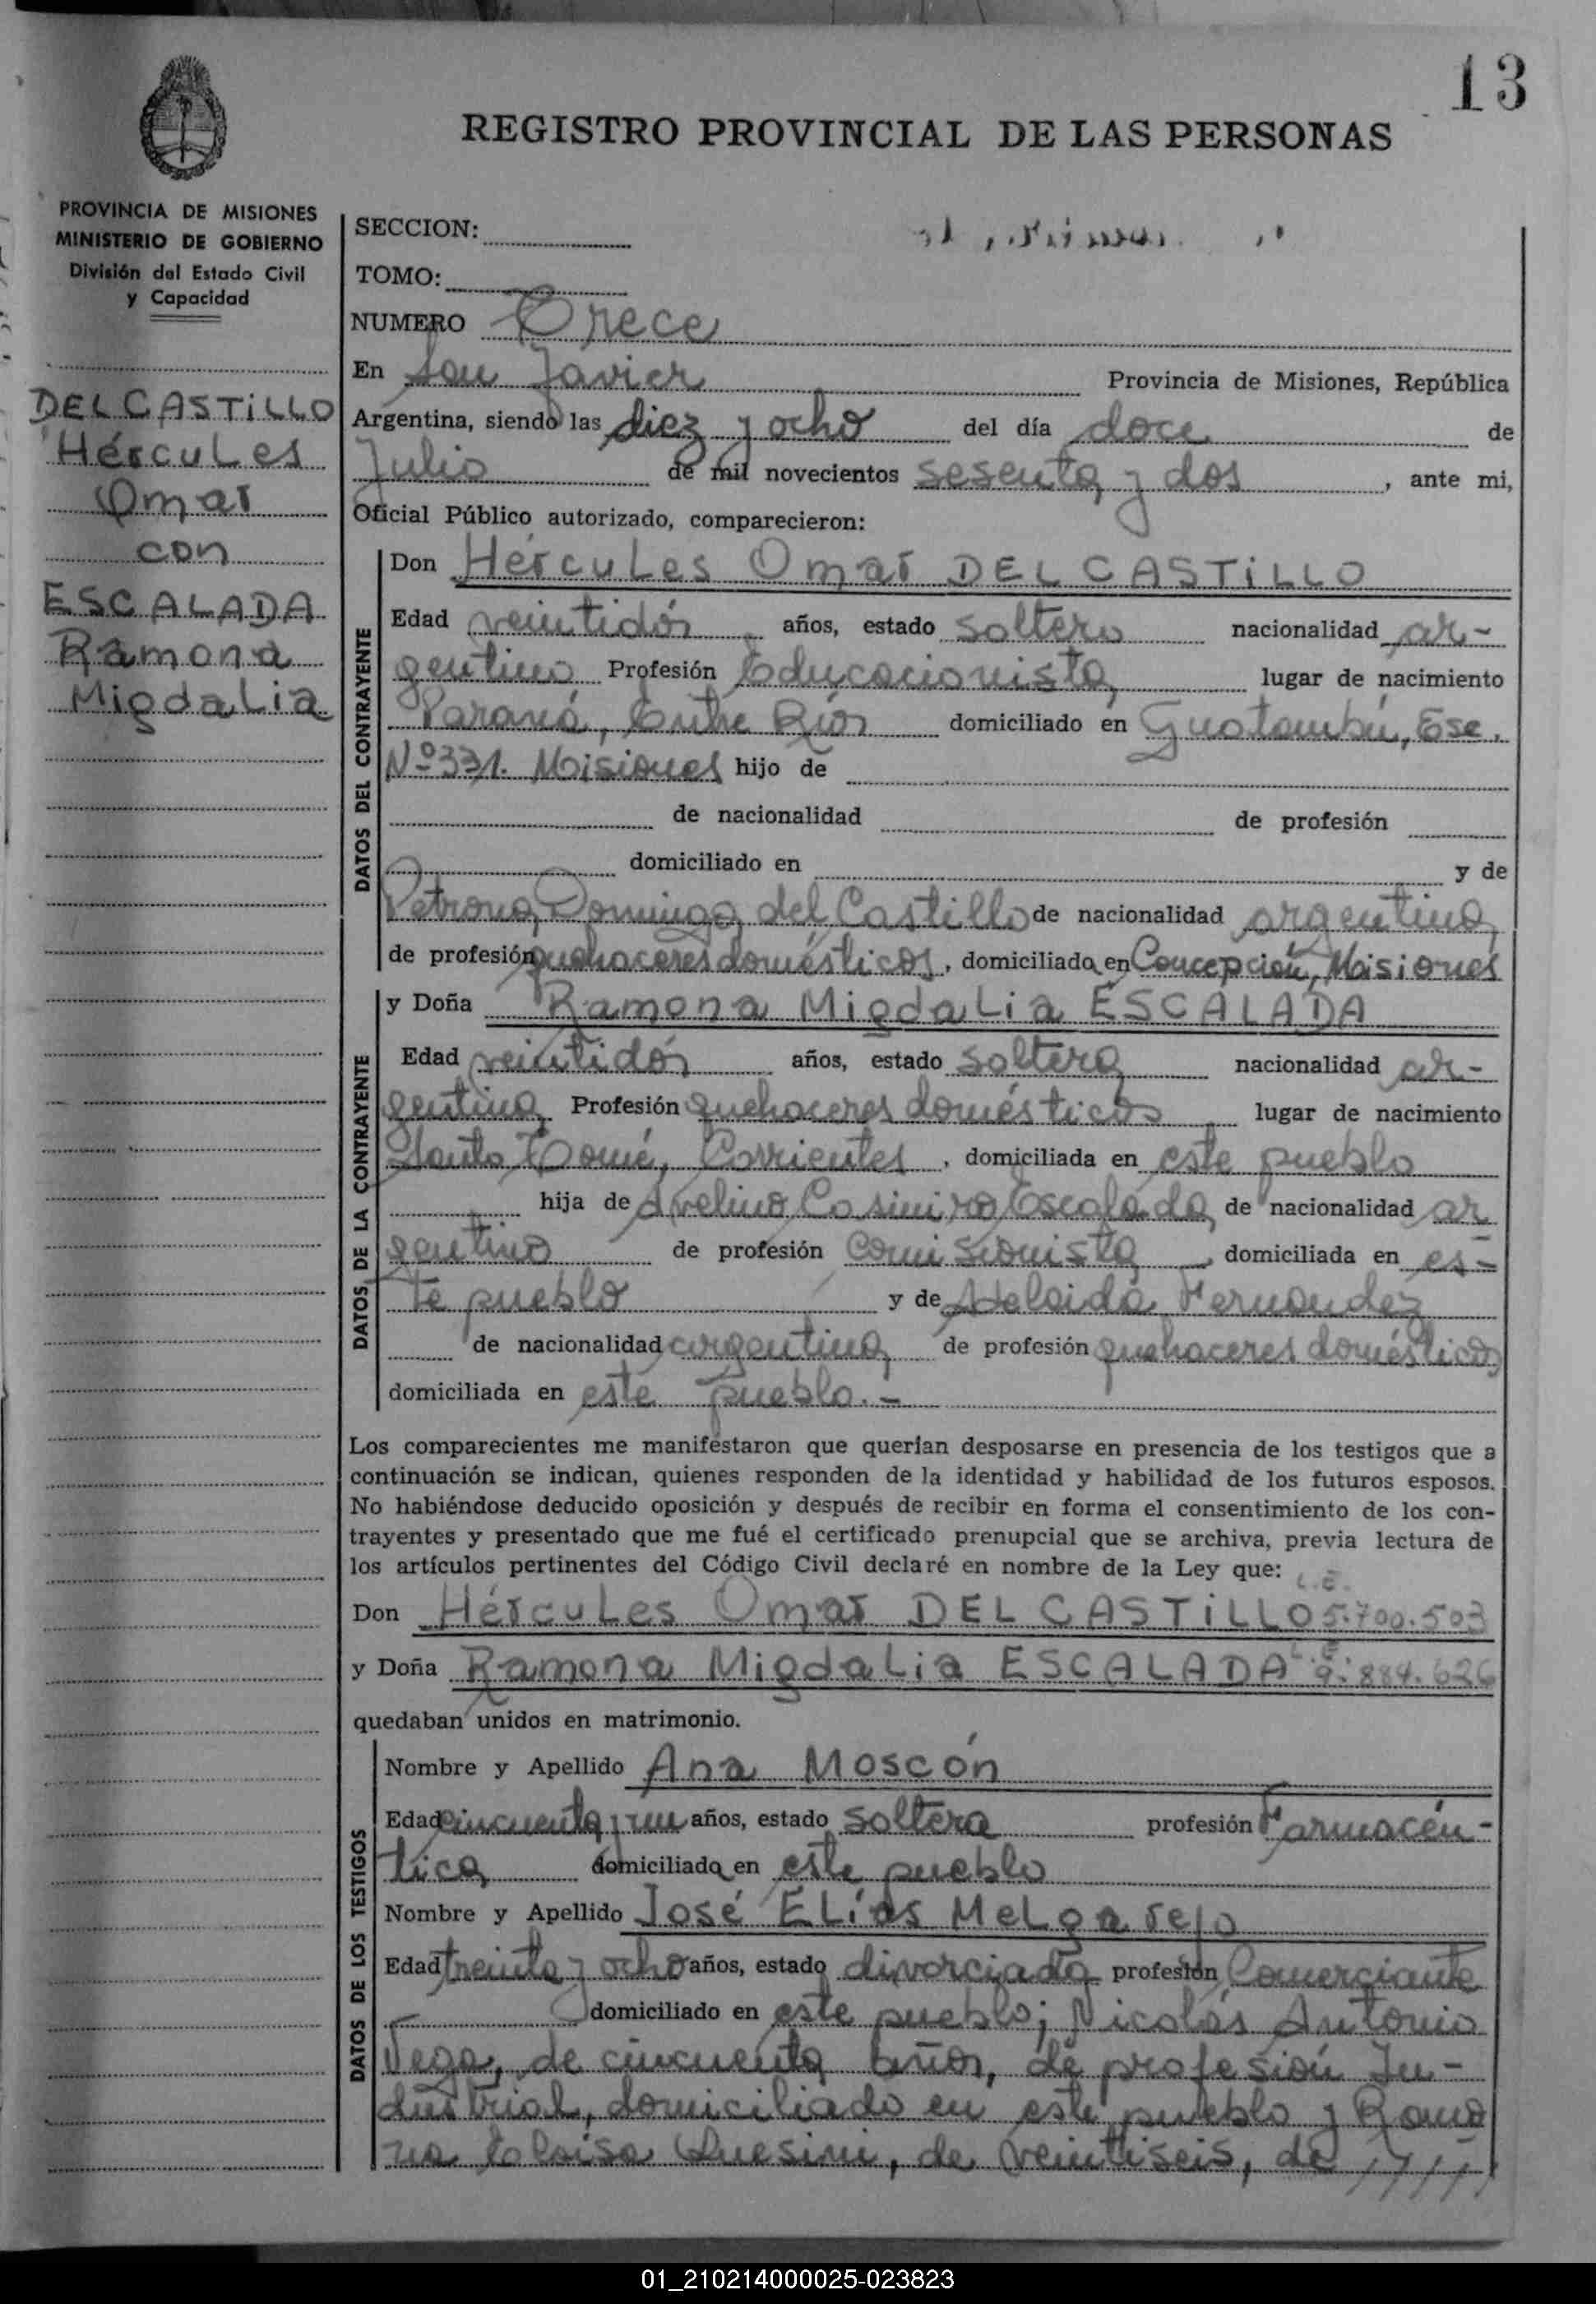 13
REGISTRO PROVINCIAL DE LAS PERSONAS
PROVINCIA DE MISIONES
MINISTERIO DE GOBIERNO
División del Estado Civil
y Capacidad
DEL CASTILLO
Hércules
Omar
con
ESCALADA
Ramona
Migdalia
SECCION:
TOMO:
NUMERO Trece
En San Javier Provincia de Misiones, República
Argentina, siendo las diez y ocho del día doce de
Julio de mil novecientos sesenta y dos, ante mi,
Oficial Público autorizado, comparecieron:
DATOS DEL CONTRAYENTE
Don Hércules Omar DEL CASTILLO
Edad veintidós años, estado soltero nacionalidad ar-
gentino Profesión Educacionista lugar de nacimiento
Paraná, Entre Ríos domiciliado en Guatambú, Esc.
Nº 331. Misiones hijo de
de nacionalidad de profesión
domiciliado en y de
Petrona Dominga del Castillo de nacionalidad argentina
de profesión quehaceres domésticos, domiciliada en Concepción, Misiones
DATOS DE LA CONTRAYENTE
y Doña Ramona Migdalia ESCALADA
Edad veintidós años, estado soltera nacionalidad ar-
gentina Profesión quehaceres domésticos lugar de nacimiento
Santo Tomé, Corrientes, domiciliada en este pueblo
hija de Avelino Casimiro Escalada de nacionalidad ar
gentino de profesión comisionista, domiciliada en es-
te pueblo y de Adelaida Fernandez
de nacionalidad argentina de profesión quehaceres domésticos
domiciliada en este pueblo.-
Los comparecientes me manifestaron que querían desposarse en presencia de los testigos que a
continuación se indican, quienes responden de la identidad y habilidad de los futuros esposos.
No habiéndose deducido oposición y después de recibir en forma el consentimiento de los con-
trayentes y presentado que me fué el certificado prenupcial que se archiva, previa lectura de
los artículos pertinentes del Código Civil declaré en nombre de la Ley que:
L.E.
Don Hércules Omar DEL CASTILLO 5.700.503
y Doña Ramona Migdalia ESCALADA 9.884.626
quedaban unidos en matrimonio.
DATOS DE LOS TESTIGOS
Nombre y Apellido Ana Moscón
Edad cincuenta y un años, estado soltera profesión Farmacéu-
tica domiciliada en este pueblo
Nombre y Apellido José Elías Melgarejo
Edad treinta y ocho años, estado divorciado profesión Comerciante
domiciliado en este pueblo; Nicolás Antonio
Vega, de cincuenta años, de profesión In-
dustrial, domiciliado en este pueblo y Ramo
na Eloisa, de veintiseis, de
01_210214000025-023823